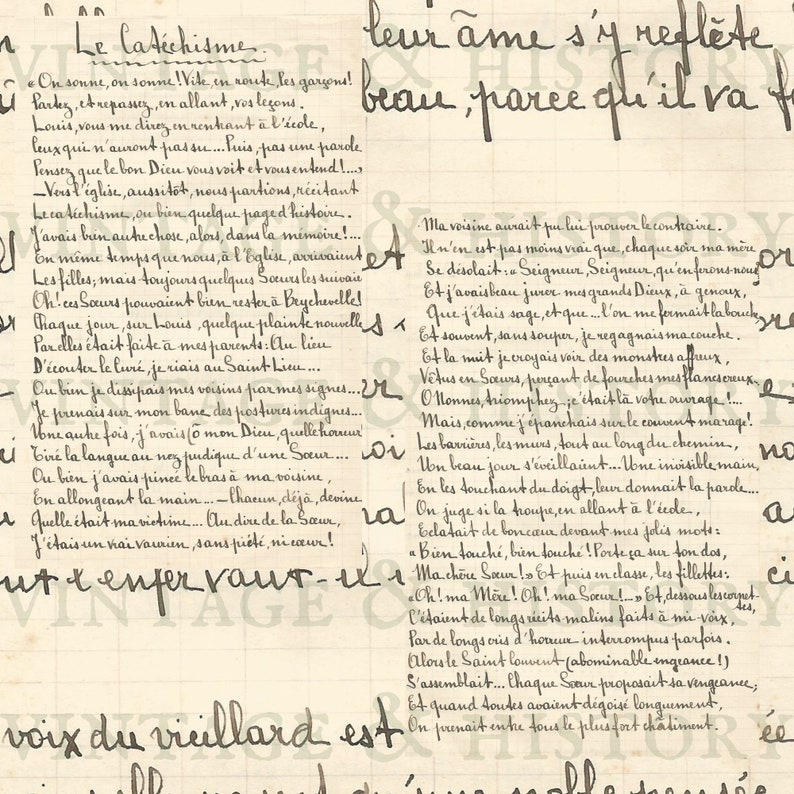 Le Catéchisme.
« On sonne, on sonne ! Vite, en route, les garçons !
Partez, et repassez, en allant, vos leçons.
Louis, vous me direz en rentrant à l'école,
Ceux qui n'auront pas su... Puis, pas une parole
Pensez que le bon Dieu vous voit et vous entend !...»
— Vers l'église, aussitôt, nous partions, récitant
Le catéchisme, ou bien quelque page d'histoire.
J'avais bien autre chose, alors, dans la mémoire !...
En même temps que nous, à l'Eglise, arrivaient
Les filles ; mais toujours quelques Sœurs les suivaie
Oh ! ces Sœurs pouvaient bien rester à Beychevelle !
Chaque jour, sur Louis, quelque plainte nouvelle
Par elles était faite à mes parents : Au lieu
D'écouter le Curé, je riais au Saint Lieu...
Ou bien je dissipais mes voisins par mes signes...
Je prenais sur mon banc des postures indignes...
Une autre fois, j'avais (Ô mon Dieu, quelle horreur
Tiré la langue au nez pudique d'une Sœur...
Ou bien j'avais pincé le bras à ma voisine,
En allongeant la main... — Chacun, déjà, devine
Quelle était ma victime... Au dire de la Sœur,
J'étais un vrai vaurien, sans piété, ni cœur !
leur âme s'y reflète
beau, parce qu'il va
Ma voisine aurait pu lui prouver le contraire.
Il n'en est pas moins vrai que, chaque soir ma mère
Se désolait : « Seigneur, Seigneur, qu'en ferons-nous
Et j'avais beau jurer mes grands Dieux, à genoux,
Que j'étais sage, et que... l'on me fermait la bouche
Et souvent, sans souper, je regagnais ma couche.
Et la nuit je croyais voir des monstres affreux,
Vêtus en Sœurs, perçant de fourches mes flancs creux.
O Nonnes, triomphez... ; c'était là votre ouvrage !...
Mais, comme j'épanchais sur le couvent ma rage !
Les barrières, les murs, tout au long du chemin,
Un beau jour s'éveillaient... Une invisible main,
En les touchant du doigt, leur donnait la parole...
On juge si la troupe, en allant à l'école,
Eclatait de bon cœur devant mes jolis mots :
« Bien touché, bien touché ! Porte ça sur ton dos,
Ma chère Sœur ! » Et puis en classe, les fillettes :
« Oh ! ma Mère ! Oh ! ma Sœur !... » Et, dessous les cornet-
tes,
C'étaient de longs récits malins faits à mi-voix,
Par de longs cris d'horreur interrompus parfois.
Alors le Saint Couvent (abominable engeance !)
S'assemblait... Chaque Sœur proposait sa vengeance ;
Et quand toutes avaient dégoisé longuement,
On prenait entre tous le plus fort châtiment.
enfer vaut-il
voix du vieillard est
une noble pensée
VINTAGE & HISTORY
VINTAGE & HISTORY
VINTAGE & HISTORY
VINTAGE & HISTORY
VINTAGE & HISTORY